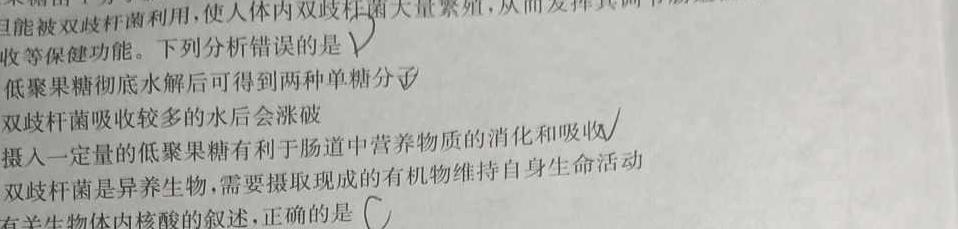 但能被双歧杆菌利用,使人体内双歧杆菌大量繁殖,从而发挥其调节肠
收等保健功能。下列分析错误的是
低聚果糖彻底水解后可得到两种单糖分子
双歧杆菌吸收较多的水后会涨破
摄入一定量的低聚果糖有利于肠道中营养物质的消化和吸收
双歧杆菌是异养生物,需要摄取现成的有机物维持自身生命活动
有关生物体内核酸的叙述,正确的是 C